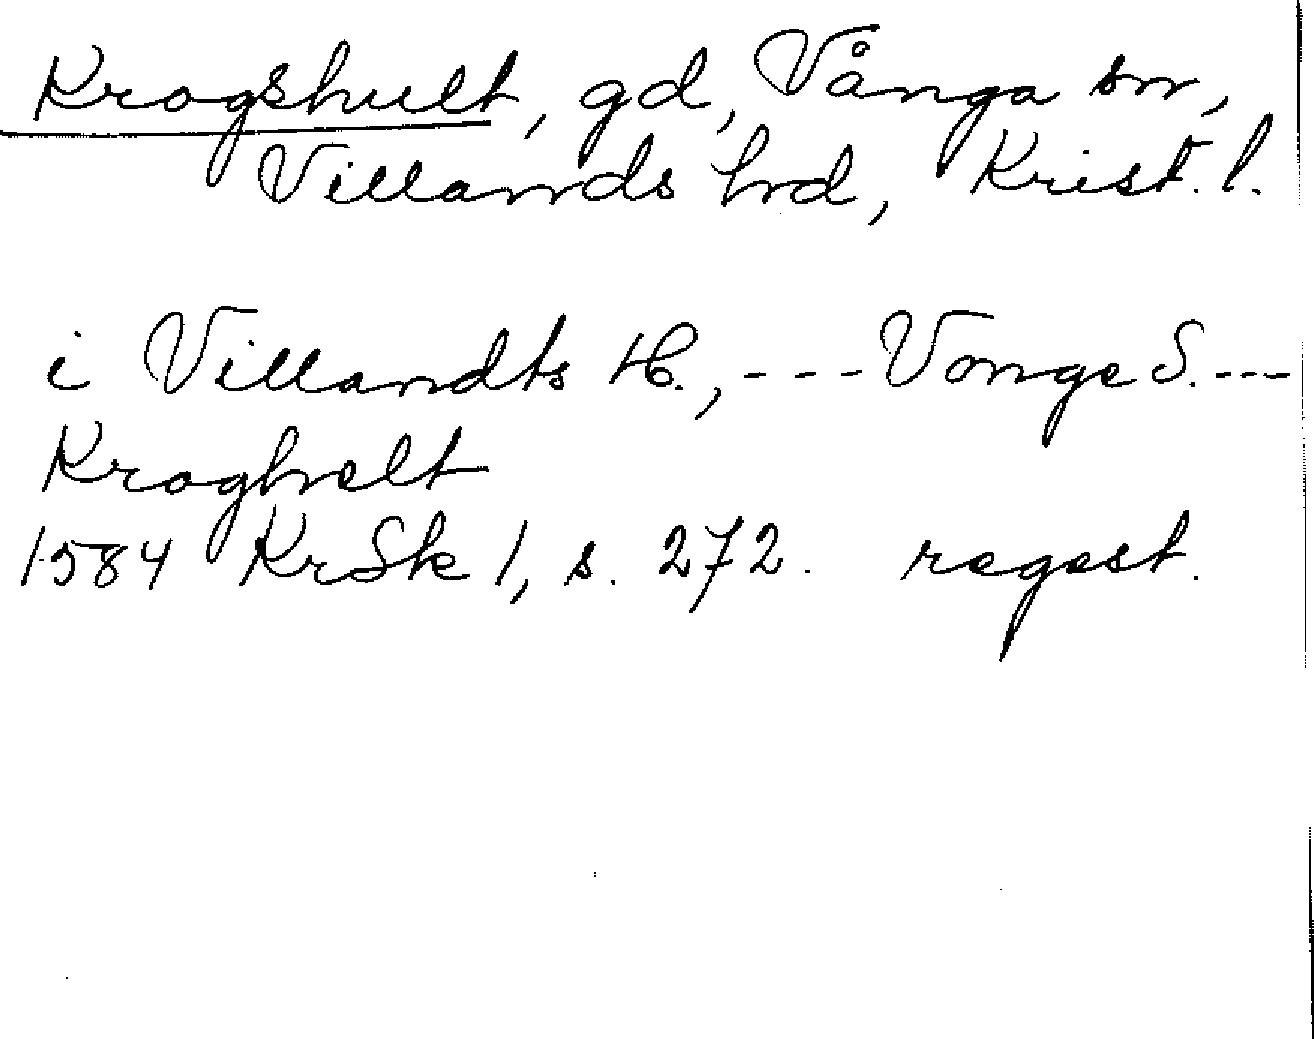 Krogshult, gd, Vånga sn,
Villands hrd, Krist. l.
i Villandts H., --- Vonge S. ---
Kroghelt
1584 KrSk 1, s. 272. regest.